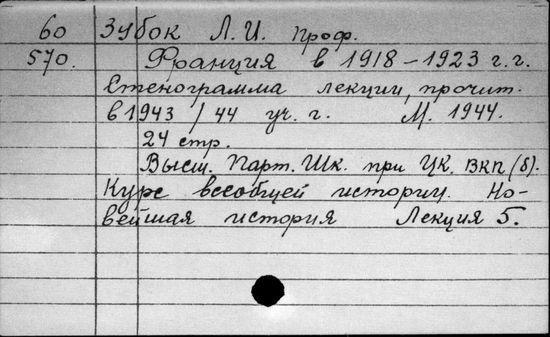 60 Зубок Л. И. проф.
570. Франция в 1918 – 1923 г.г.
Стенограмма лекции, прочит.
в 1943 / 44 уч. г. М. 1944.
24 стр.
Высш. Парт. Шк. при ЦК. ВКП(б).
Курс всеобщей истории. Но-
вейшая история Лекция 5.